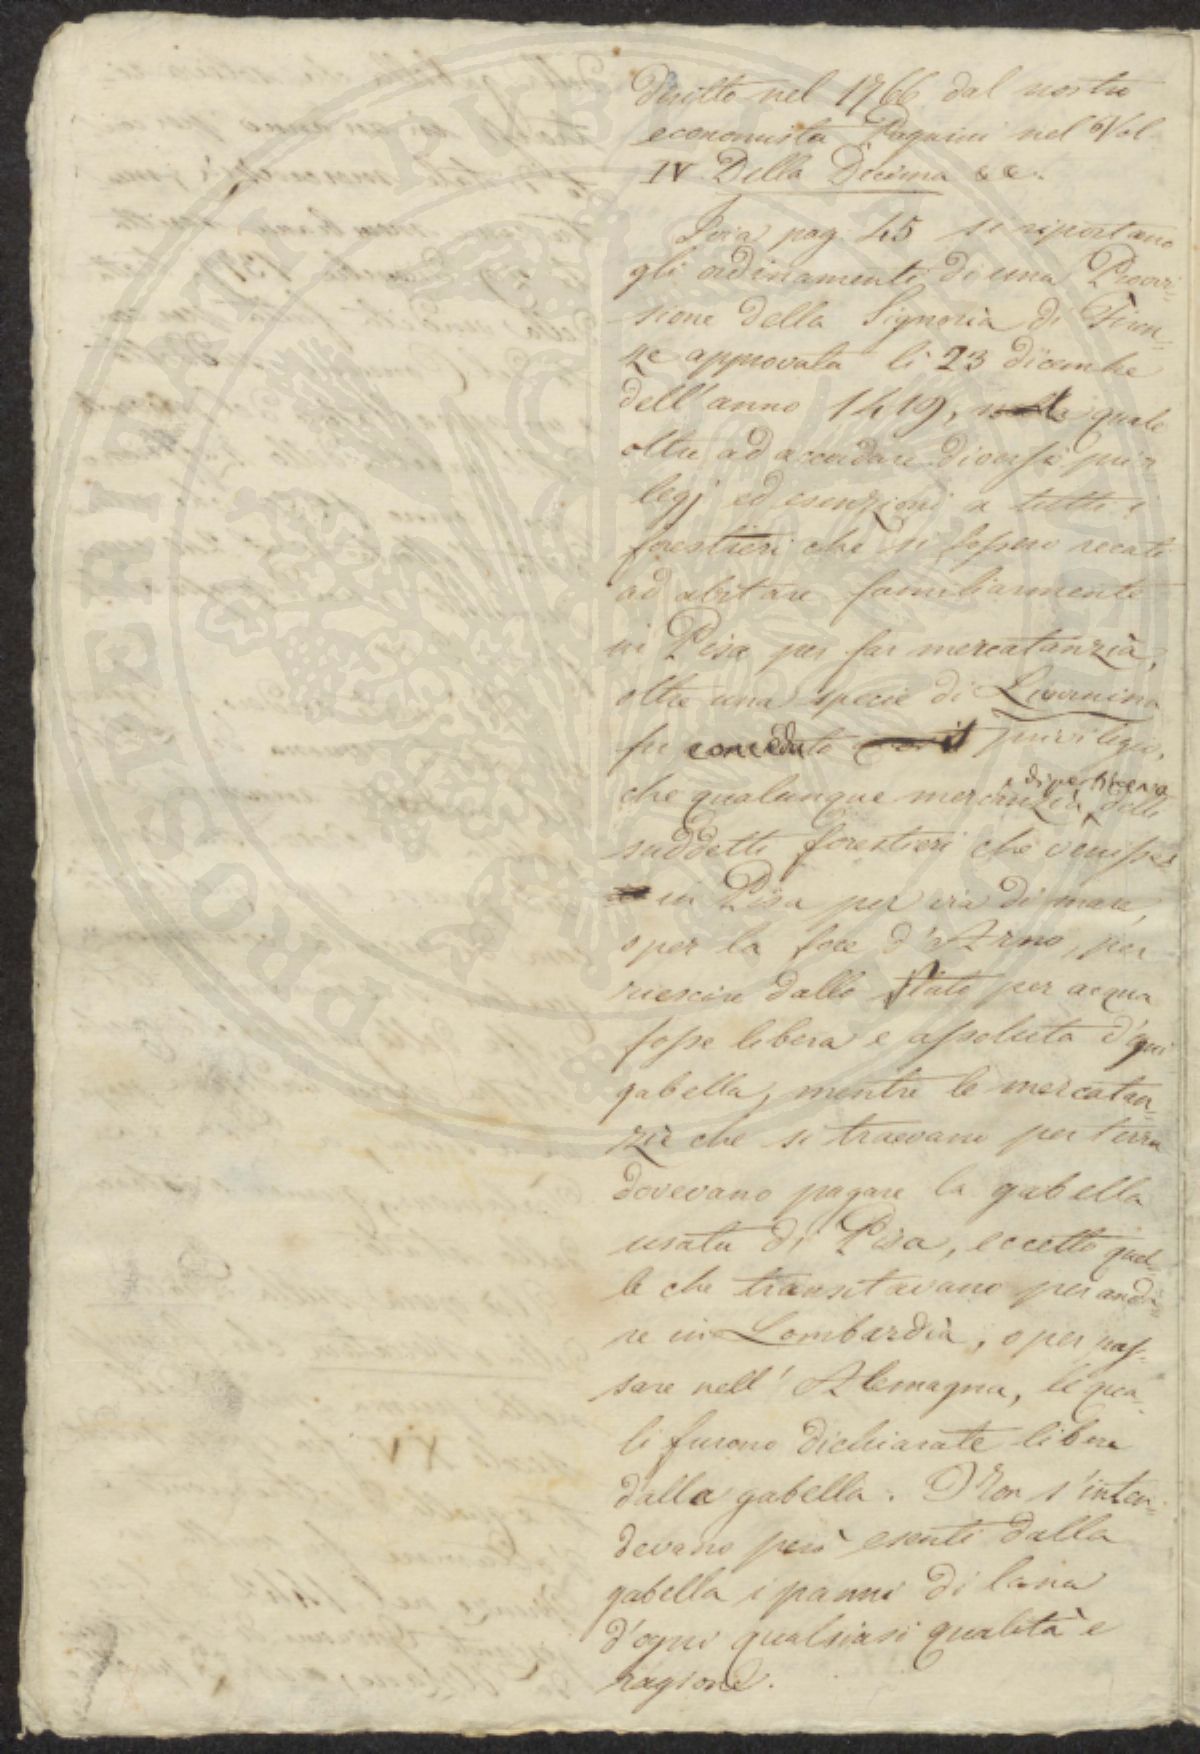 diritto nel 1766 dal nostro
economista Pagnini nel Vol
IV Della Decima &c.
Ivia pag. 45 si riportano
gli ordinamenti di una Provvi=
sione della Signoria di Firen=
ze approvata li 23 dicembre
dell'anno 1419, quale
oltre ad accordare diversi privi
legj ed esenzioni a tutti i
forestieri che si fossero recati
ad abitare familiarmente
in Pisa per far mercatanzia,
oltre una specie di Livornina
fu conceduto il privilegio,
che qualunque mercanzia di pertinenza delli
suddetti forestieri che venisse
in Pisa per via di mare,
o per la foce d'Arno, per
riescire dallo stato per acqua
fosse libera e assoluta d'ogni
gabella, mentre le mercatan=
zie che si traevano per terra
dovevano pagare la gabella
usata di Pisa, eccetto quel=
le che transitavano per anda=
re in Lombardia, o per pas=
sare nell'Alemagna, le qua=
li furono dichiarate libere
dalla gabella. Non s'inten=
devano però esenti dalla
gabella i panni di lana
d'ogni qualsiasi qualità e
ragione.
PROSPERITATI PUBLICAE